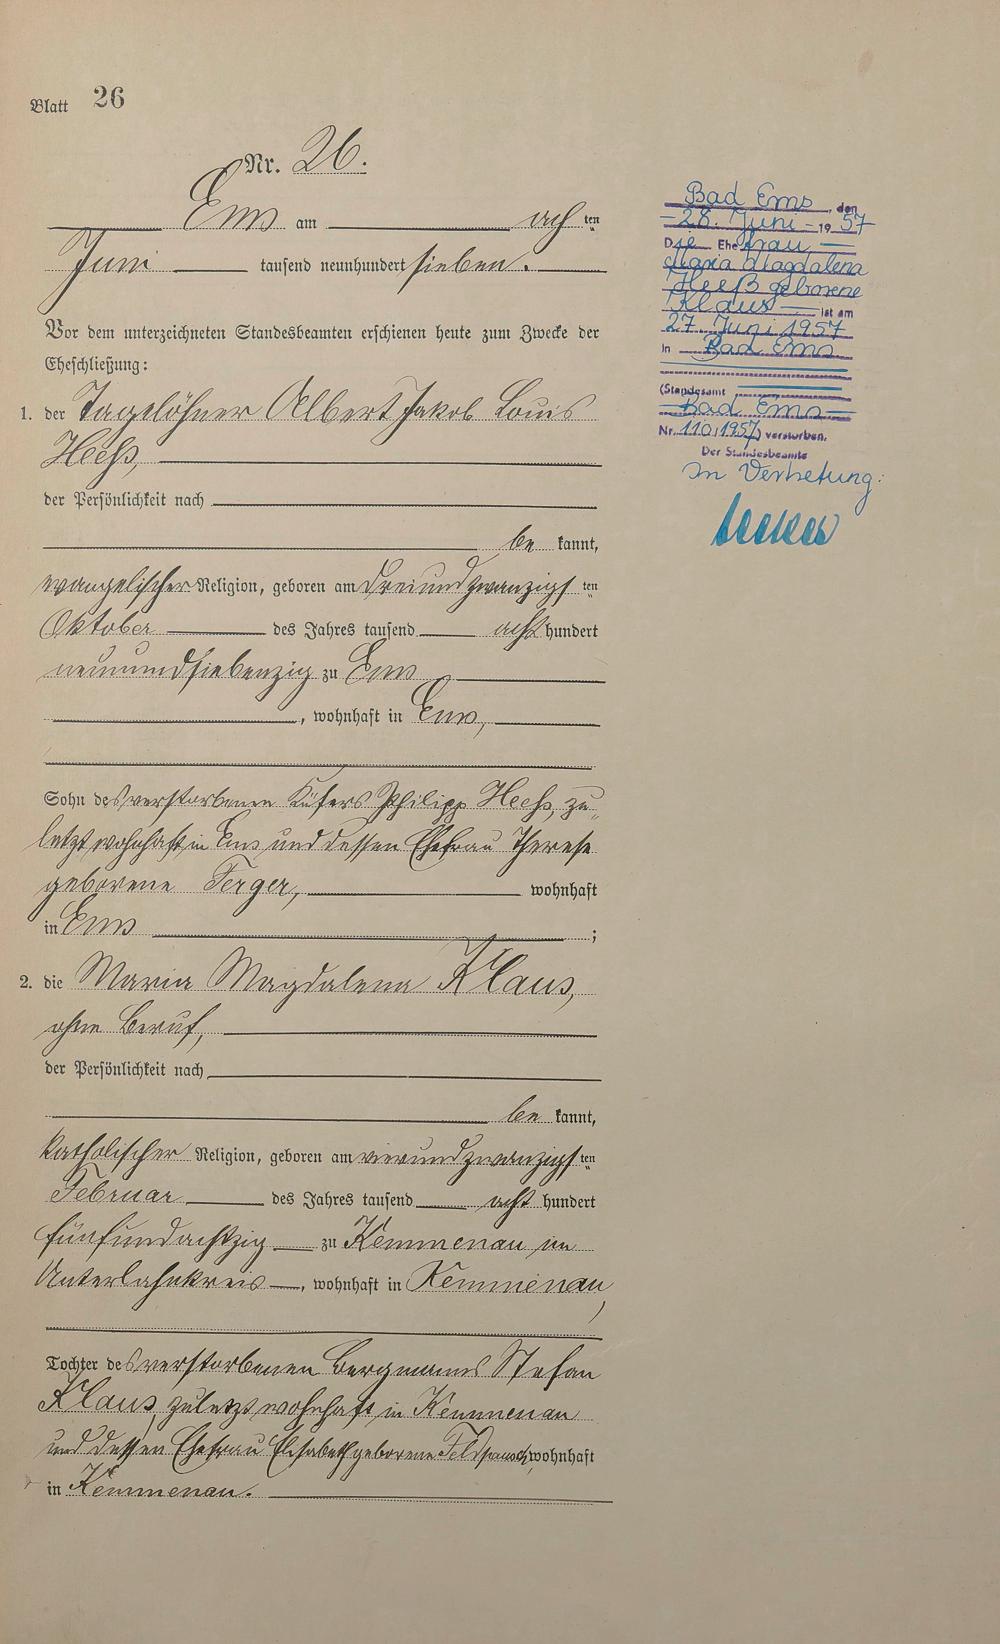 Blatt 26
Nr. 26.
Ems am achten
Juni tausend neunhundert sieben.
Vor dem unterzeichneten Standesbeamten erschienen heute zum Zwecke der
Eheschließung:
1. der Tagelöhner Albert Jakob Louis
Heeß,
der Persönlichkeit nach
be kannt,
evangelischer Religion, geboren am dreiundzwanzigsten
Oktober des Jahres tausend acht hundert
neunundsiebenzig zu Ems
, wohnhaft in Ems,
Sohn des verstorbenen Küfers Philipp Heeß, zu-
letzt wohnhaft in Ems und dessen Ehefrau Therese
geborene Ferger, wohnhaft
in Ems ;
2. die Maria Magdalena Klaus,
ohne Beruf,
der Persönlichkeit nach
be kannt,
katholischer Religion, geboren am vierundzwanzigsten
Februar des Jahres tausend acht hundert
fünfundachtzig zu Kemmenau im
Unterlahnkreis , wohnhaft in Kemmenau,
Tochter des verstorbenen Bergmanns Stefan
Klaus, zuletzt wohnhaft in Kemmenau
und dessen Ehefrau Elisabeth geborene wohnhaft
in Kemmenau.
Bad Ems, den
28. Juni 1957
Die Ehefrau
Maria Magdalena
Heeß geborene
Klaus ist am
27. Juni 1957
in Bad Ems
(Standesamt
Bad Ems
Nr. 110/1957) verstorben.
Der Standesbeamte
In Vertretung: